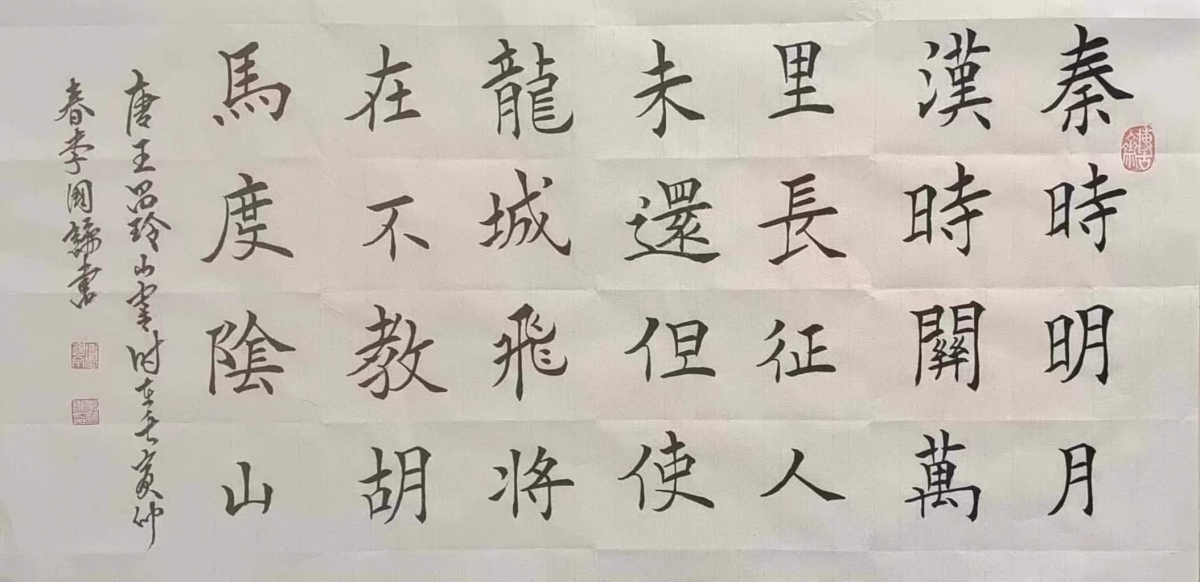 秦時明月
漢時關萬
里長征人
未還但使
龍城飛將
在不教胡
馬度陰山
唐王昌玲出塞时在壬寅仲
春李國書